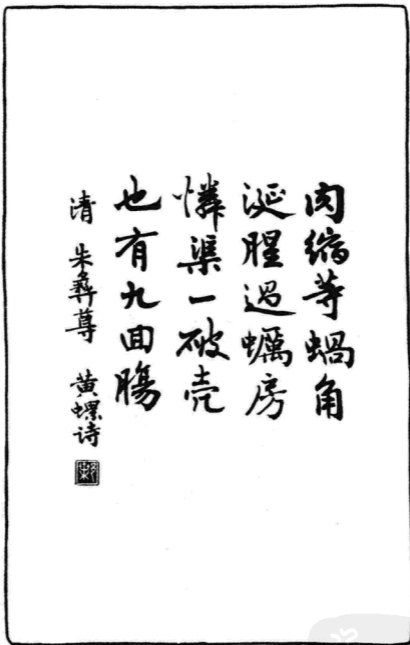 肉缩等蝸角
涎腥過蠣房
憐渠一破壳
也有九回腸
清 朱彝尊 黄螺诗